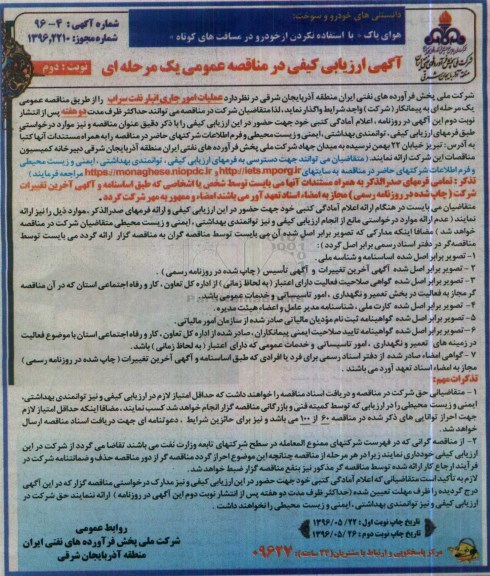 دانستنی های خودرو و سوخت:
هوای پاک « با استفاده نکردن از خودرو در مسافت های کوتاه »
شماره آگهی: ۰۴-۹۶
شماره مجوز: ۱۳۹۶،۲۲۱۰
آگهی ارزیابی کیفی در مناقصه عمومی یک مرحله ای
نوبت : دوم
شرکت ملی پخش فرآورده های نفتی ایران منطقه آذربایجان شرقی در نظر دارد عملیات امور جاری انبار نفت سراب را از طریق مناقصه عمومی
یک مرحله ای به پیمانکار ( شرکت ) واجد شرایط واگذار نماید. لذا متقاضیان شرکت در مناقصه می توانند حداکثر ظرف مدت دو هفته پس از انتشار
نوبت دوم این آگهی در روزنامه ، اعلام آمادگی کتبی خود جهت حضور در این ارزیابی کیفی را با ذکر دقیق عنوان مناقصه و نیز موارد درخواستی
طبق فرمهای ارزیابی کیفی ، توانمندی بهداشتی ، ایمنی و زیست محیطی و فرم اطلاعات شرکتهای حاضر در مناقصه را به همراه مستندات آنها کتباً
به آدرس: تبریز خیابان ۲۲ بهمن نرسیده به میدان جهاد شرکت ملی پخش فرآورده های نفتی ایران منطقه آذربایجان شرقی دبیرخانه کمیسیون
مناقصات این شرکت ارائه نمایند. ( متقاضیان می توانند جهت دسترسی به فرمهای ارزیابی کیفی ، توانمندی بهداشتی ، ایمنی و زیست محیطی
و فرم اطلاعات شرکتهای حاضر در مناقصه به سایتهای http://iets.mporg.ir و https://monaghese.niopdc.ir مراجعه فرمایند )
تذکر : تمامی فرمهای صدرالذکر به همراه مستندات آنها می بایست توسط شخص یا اشخاصی که طبق اساسنامه و آگهی آخرین تغییرات
شرکت ( چاپ شده در روزنامه رسمی ) مجاز به امضاء اسناد تعهد آور می باشند امضاء و ممهور به مهر شرکت گردد .
متقاضیان می بایست در هنگام ارائه اعلام آمادگی کتبی خود جهت حضور در این ارزیابی کیفی و ارائه فرمهای صدرالذکر ، موارد ذیل را نیز ارائه
نمایند ( عدم ارائه موارد درخواستی مانع از انجام ارزیابی کیفی و نیز توانمندی بهداشتی ، ایمنی و زیست محیطی متقاضیان شرکت در مناقصه
خواهد شد ) مضافا اینکه مدارکی که تصویر برابر اصل شده آن می بایست توسط مناقصه گران به مناقصه گزار ارائه گردد می بایست توسط
مناقصه گر در دفتر اسناد رسمی برابر اصل گردد ) :
۱- تصویر برابر اصل شده اساسنامه و شناسه ملی.
۲ - تصویر برابر اصل شده آگهی آخرین تغییرات و آگهی تأسیس ( چاپ شده در روزنامه رسمی ) .
۳- تصویر برابر اصل شده گواهی صلاحیت فعالیت دارای اعتبار ( به لحاظ زمانی ) از اداره کل تعاون ، کار و رفاه اجتماعی استان که در آن مناقصه
گر مجاز به فعالیت در بخش تعمیر و نگهداری ، امور تاسیساتی و خدمات عمومی باشد.
۴- تصویر برابر اصل شده کارت ملی ، شناسنامه مدیر عامل و اعضاء هیئت مدیره.
۵- تصویر برابر اصل شده گواهینامه ثبت نام مؤدیان مالیاتی صادر شده از سازمان امور مالیاتی.
۶- تصویر برابر اصل شده گواهینامه تایید صلاحیت ایمنی پیمانکاران ، صادر شده از اداره کل تعاون ، کار و رفاه اجتماعی استان با موضوع فعالیت
در زمینه های تعمیر و نگهداری ، امور تاسیساتی و خدمات عمومی که دارای اعتبار ( به لحاظ زمانی ) باشد .
۷- گواهی امضاء صادر شده از دفتر اسناد رسمی برای فرد یا افرادی که طبق اساسنامه و آگهی آخرین تغییرات ( چاپ شده در روزنامه رسمی )
مجاز به امضاء اسناد تعهد آور می باشند .
تذکرات مهم:
۱ - متقاضیانی حق شرکت در مناقصه و دریافت اسناد مناقصه را خواهند داشت که حداقل امتیاز لازم در ارزیابی کیفی و نیز توانمندی بهداشتی،
ایمنی و زیست محیطی را در ارزیابی که توسط کمیته فنی و بازرگانی مناقصه گزار انجام خواهد شد کسب نمایند. مضافا اینکه حداقل امتیاز لازم
جهت احراز توانایی های ذکر شده در مناقصه ۶۰ از ۱۰۰ می باشد و نیز برای حائزین شرایط ، دعوتنامه ای جهت دریافت اسناد مناقصه ارسال
خواهد شد.
۲- از مناقصه گرانی که در فهرست شرکتهای ممنوع المعامله در سطح شرکتهای تابعه وزارت نفت می باشند تقاضا می گردد از شرکت در این
ارزیابی کیفی خودداری نمایند زیرا در هر مرحله از مناقصه چنانچه این موضوع احراز گردد مناقصه گر از دور مناقصه حذف و ضمانتنامه شرکت در
فرآیند ارجاع کار ارائه شده توسط مناقصه گر مذکور نیز بنفع مناقصه گزار ضبط خواهد شد.
لازم به تأکید است متقاضیانی که اعلام آمادگی کتبی خود جهت حضور در این ارزیابی کیفی و نیز مدارک درخواستی مناقصه گزار که در این آگهی
درج گردیده را ظرف مهلت تعیین شده ( حداکثر ظرف مدت دو هفته پس از انتشار نوبت دوم این آگهی در روزنامه ) ارائه ننمایند حق شرکت در
ارزیابی کیفی و نیز توانمندی بهداشتی ، ایمنی و زیست محیطی را نخواهند داشت .
تاریخ چاپ نوبت اول : ۲۲ /۰۵ /۱۳۹۶
تاریخ چاپ نوبت دوم : ۲۶ /۰۵ /۱۳۹۶
مرکز پاسخگویی و ارتباط با مشتریان (۲۴ ساعته): ۰۹۶۲۷
روابط عمومی
شرکت ملی پخش فرآورده های نفتی ایران
منطقه آذربایجان شرقی